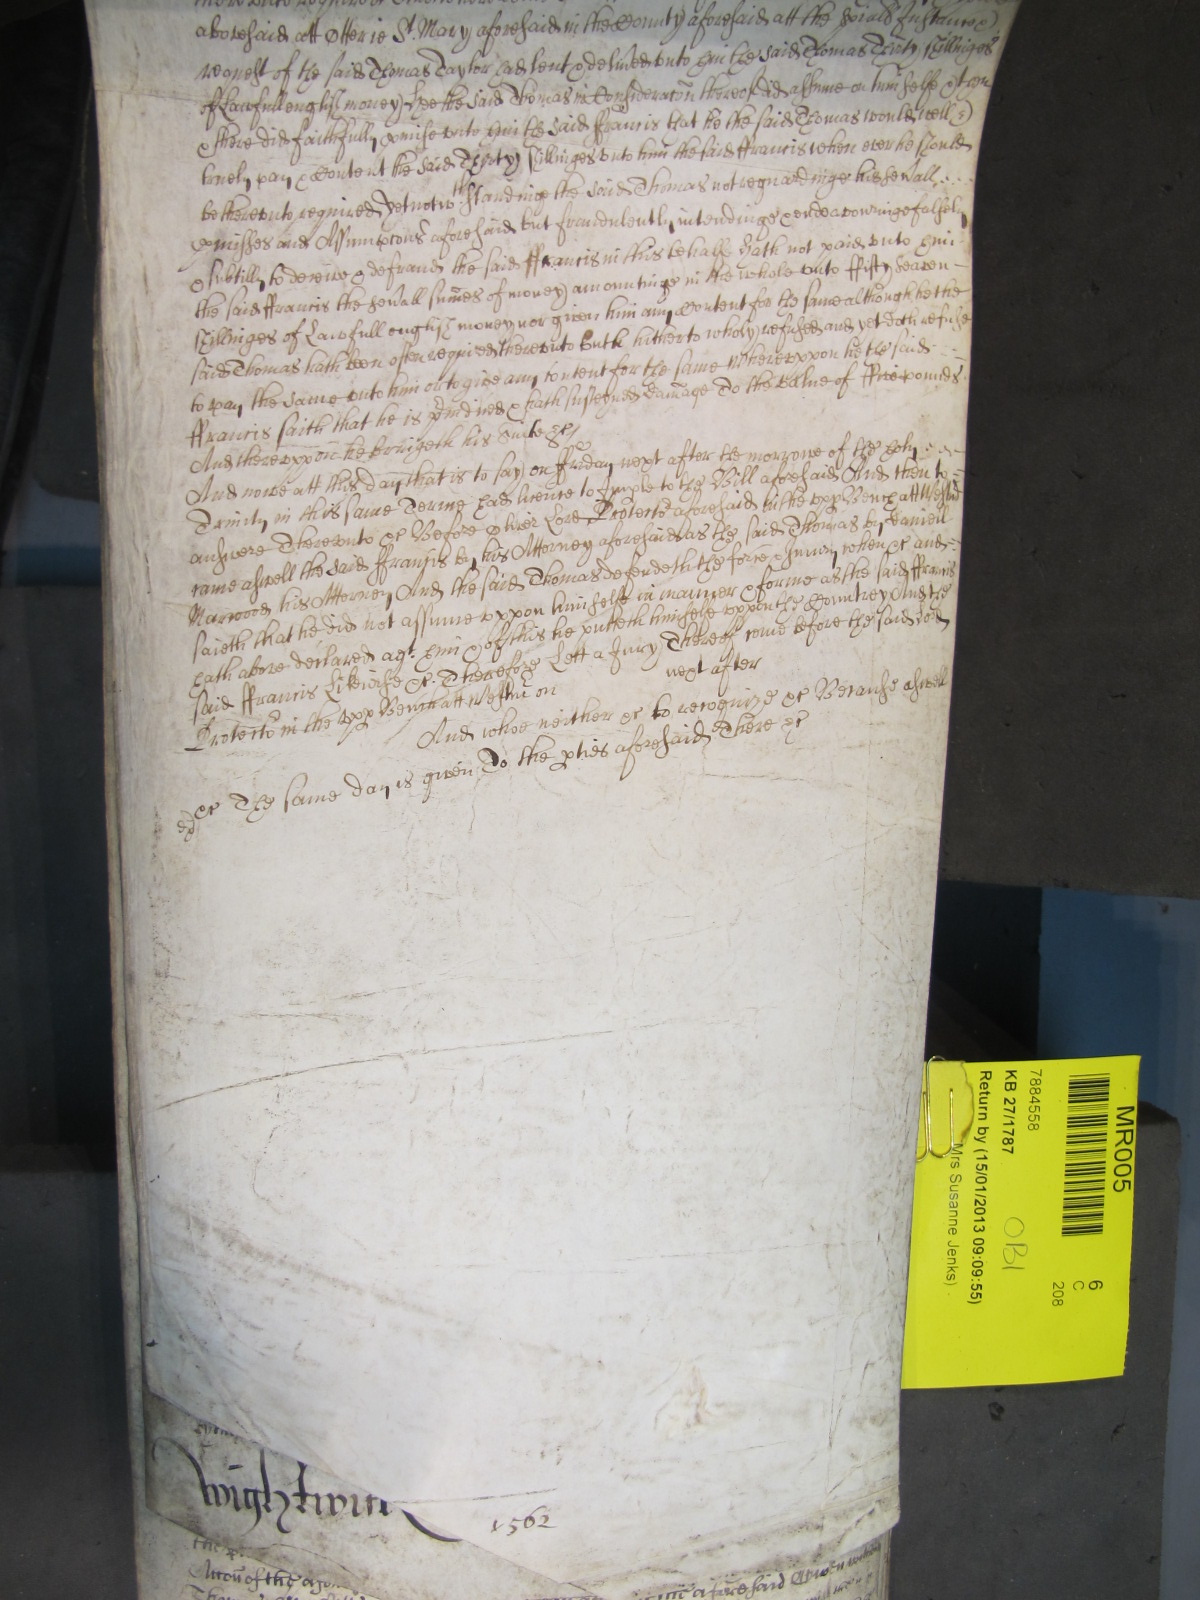 abovesaid att Otterie St. Mary aforesaid in the County aforesaid att the speciall Instance &
request of the said Thomas Taylor had lent & delived unto him the said Thomas Thirty shillinges
of Lawfull english money Hee the said Thomas in Consideracon thereof did assume on himselfe & then
& there did faithfully pmise unto him the said ffrancis that he the said Thomas would well &
truely pay & Content the said Thirty shillinges unto him the said ffrancis when ever he should
be thereunto required Yet notwthstandinge the said Thomas not regardinge his sevall
pmisses and Assumptions aforesaid but fraudulently intendinge & endeavouringe falsely
& subtilly to deceive & defraud the said ffrancis in this behalfe hath not paid unto him
the said ffrancis the sevall sumes of money amountinge in the whole unto ffifty seaven
shillinges of Lawfull english money nor given him any Content for the same although he the
said Thomas hath been often required thereunto but hitherto wholy refused and yet doth refuse
to pay the same unto him or to give any content for the same Whereuppon he the said
ffrancis saith that he is piudiced & hath susteyned damage To the value of ffive pounds
And thereuppon he bringeth his Suite &c
And nowe att this day that is to say on ffriday next after the morrowe of the holy
Trinity in this same Terme had licence to Imple to the Bill aforesaid And then to
answere Thereunto &c Before Oliver Lord Protector aforesaid in the upp Bench att Westmr
came aswell the said ffrancis by his Attorney aforesaid as the said Thomas by Daniell
Marwood his Attorney And the said Thomas defendeth the force & Iniury when &c and
saieth that he did not assume uppon himselfe in manner & forme as the said ffrancis
hath above declared agt him & of this he putteth himselfe uppon the Countrey And the
said ffrancis Likewise &c Therefore Lett a Jury Thereof come before the said Lord
Protector in the upp Bench att Westmr on next after
And whoe neither &c to recognize &c Because aswell
&c The same day is given To the pties aforesaid There &c
Wightwick
1562
Mrs Susanne Jenks)
Return by (15/01/2013 09:09:55)
KB 27/1787
OB1
7884558
208
C
6
MR005